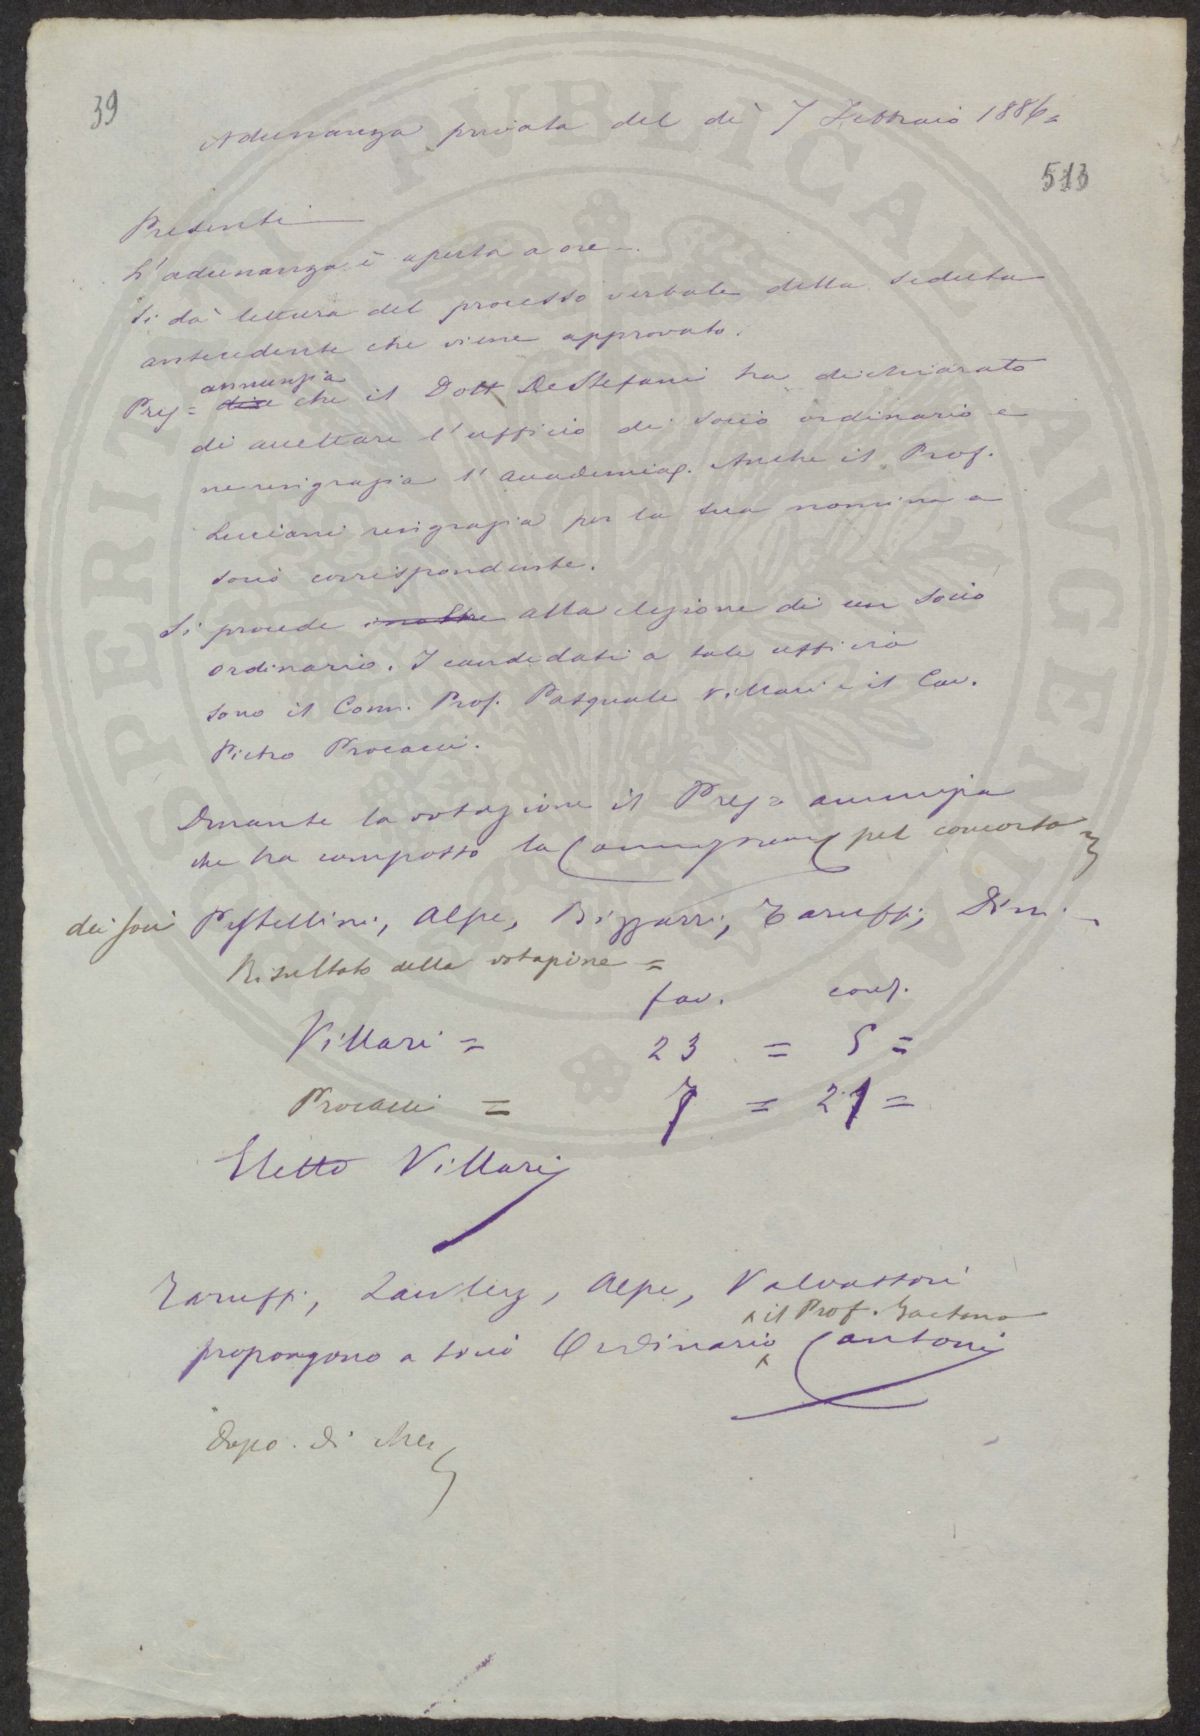 39
Adunanza privata del dì 7 Febbraio 1886=
513
Presenti
L'adunanza è aperta a ore
Si dà lettura del processo verbale della seduta
antecedente che viene approvato.
annunzia
Pres= dice che il Dott De Stefani ha dichiarato
di accettare l'ufficio di socio ordinario e
ne ringrazia l'Accademia. Anche il Prof.
Luciani ringrazia per la sua nomina a
socio corrispondente.
Si procede inoltre alla elezione di un socio
ordinario. I candidati a tale ufficio
sono il Comm. Prof. Pasquale Villari e il Cav.
Pietro Procacci.
Durante la votazione il Pres= annunzia
che ha composto la Commissione pel concorso
dei soci Pestellini, Alpe, Bizzarri, Taruffi, Dim.
Risultato della votazione =
fav. cont.
Villari = 23 = 5 =
Procacci = 7 = 21 =
Eletto Villari
Taruffi, Lawley, Alpe, Valvassori
il Prof. Gaetano
propongono a socio Ordinario Cantoni
Dopo di che
PVBLICAE PROSPERITATI AVGENDAE